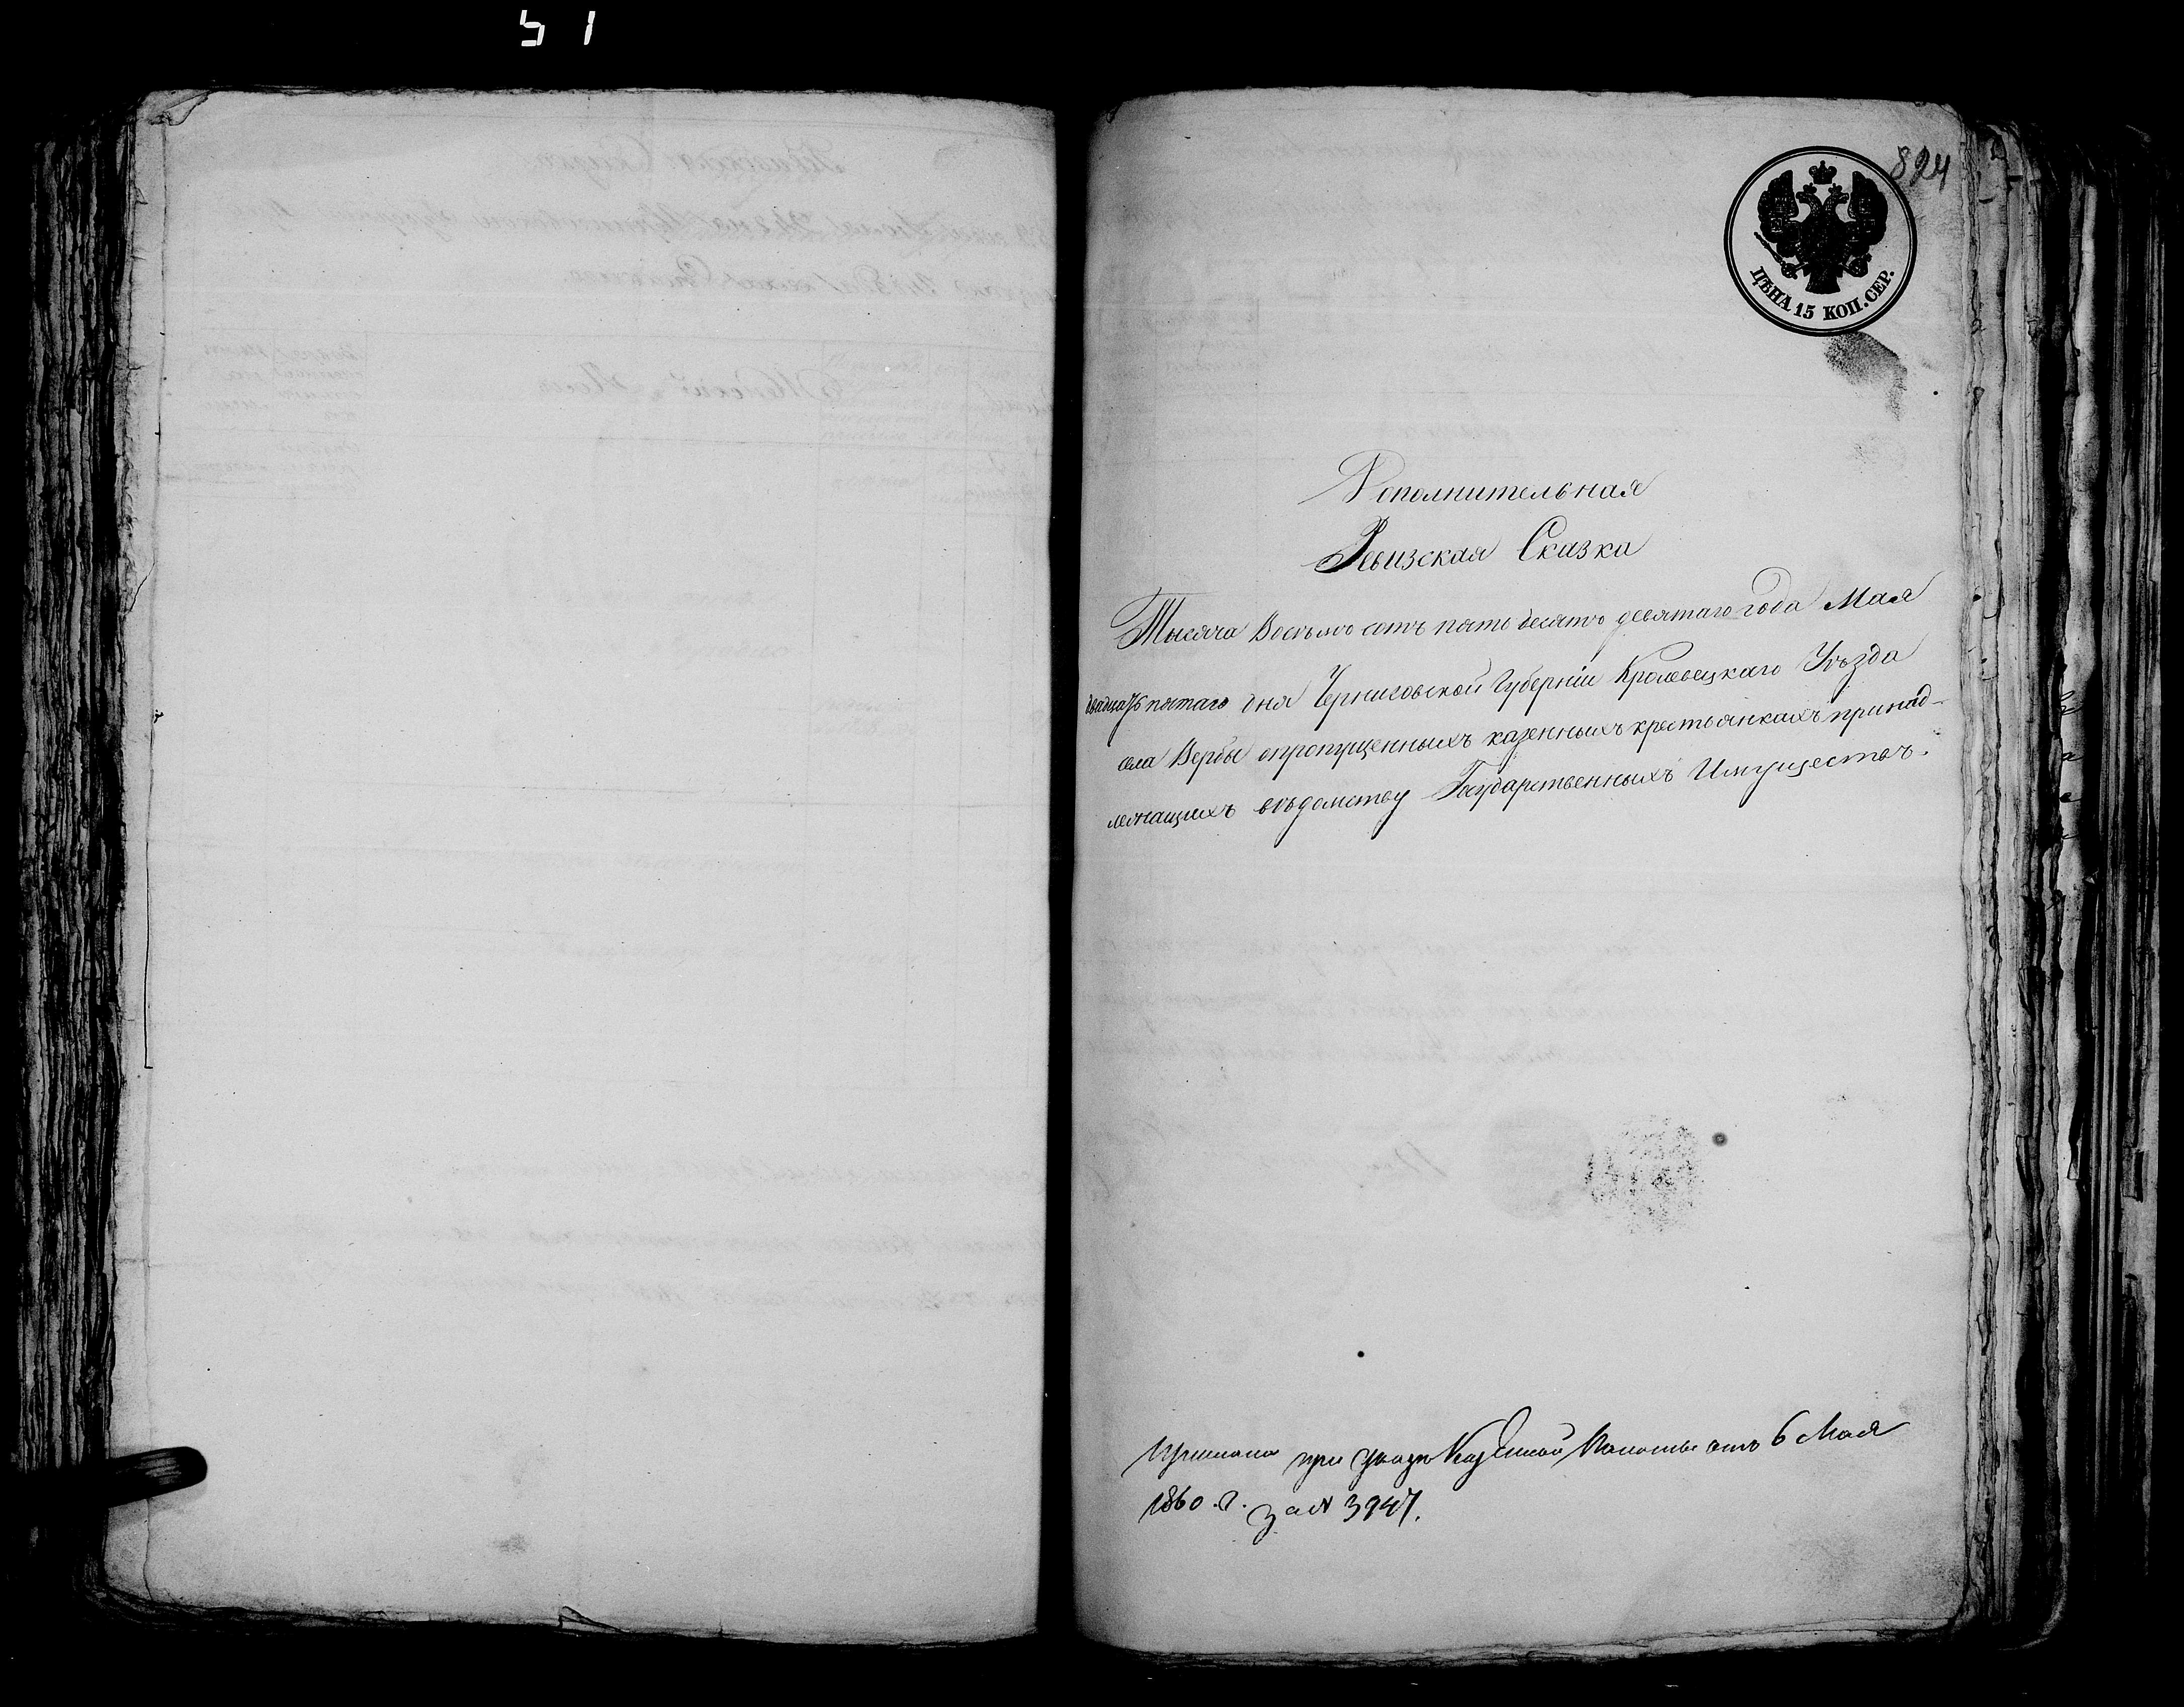 51
824
ЦѢНА 15 КОП. СЕР.
Дополнительная
Ревизская Сказка
Тысяча Восемьсотъ пятьдесятъ девятаго года Мая
двадцать пятаго дня Черниговской Губерніи Кролевецкаго Уѣзда
села Вербы опропущенныхъ казенныхъ крестьянкахъ принад-
лежащихъ вѣдомству Государственныхъ Имуществъ.
при указѣ Казенной Палаты отъ 6 Мая
1860. г. за № 3947.